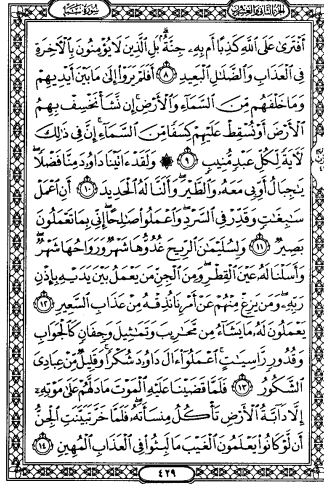 الجزء الثاني والعشرون سورة سبإ
أَفْتَرَىٰ عَلَى ٱللَّهِ كَذِبًا أَم بِهِۦ جِنَّةٌۢ ۗ بَلِ ٱلَّذِينَ لَا يُؤْمِنُونَ بِٱلْءَاخِرَةِ
فِى ٱلْعَذَابِ وَٱلضَّلَٰلِ ٱلْبَعِيدِ ٨ أَفَلَمْ يَرَوْا۟ إِلَىٰ مَا بَيْنَ أَيْدِيهِمْ
وَمَا خَلْفَهُم مِّنَ ٱلسَّمَآءِ وَٱلْأَرْضِ ۚ إِن نَّشَأْ نَخْسِفْ بِهِمُ
ٱلْأَرْضَ أَوْ نُسْقِطْ عَلَيْهِمْ كِسَفًا مِّنَ ٱلسَّمَآءِ ۚ إِنَّ فِى ذَٰلِكَ
لَءَايَةً لِّكُلِّ عَبْدٍ مُّنِيبٍ ٩ ۞ وَلَقَدْ ءَاتَيْنَا دَاوُۥدَ مِنَّا فَضْلًا ۖ
يَٰجِبَالُ أَوِّبِى مَعَهُۥ وَٱلطَّيْرَ ۖ وَأَلَنَّا لَهُ ٱلْحَدِيدَ ١٠ أَنِ ٱعْمَلْ
سَٰبِغَٰتٍ وَقَدِّرْ فِى ٱلسَّرْدِ ۖ وَٱعْمَلُوا۟ صَٰلِحًا ۖ إِنِّى بِمَا تَعْمَلُونَ
بَصِيرٌ ١١ وَلِسُلَيْمَٰنَ ٱلرِّيحَ غُدُوُّهَا شَهْرٌ وَرَوَاحُهَا شَهْرٌ ۖ
وَأَسَلْنَا لَهُۥ عَيْنَ ٱلْقِطْرِ ۖ وَمِنَ ٱلْجِنِّ مَن يَعْمَلُ بَيْنَ يَدَيْهِ بِإِذْنِ
رَبِّهِۦ ۖ وَمَن يَزِغْ مِنْهُمْ عَنْ أَمْرِنَا نُذِقْهُ مِنْ عَذَابِ ٱلسَّعِيرِ ١٢
يَعْمَلُونَ لَهُۥ مَا يَشَآءُ مِن مَّحَٰرِيبَ وَتَمَٰثِيلَ وَجِفَانٍ كَٱلْجَوَابِ
وَقُدُورٍ رَّاسِيَٰتٍ ۚ ٱعْمَلُوٓا۟ ءَالَ دَاوُۥدَ شُكْرًا ۚ وَقَلِيلٌ مِّنْ عِبَادِىَ
ٱلشَّكُورُ ١٣ فَلَمَّا قَضَيْنَا عَلَيْهِ ٱلْمَوْتَ مَا دَلَّهُمْ عَلَىٰ مَوْتِهِۦٓ
إِلَّا دَآبَّةُ ٱلْأَرْضِ تَأْكُلُ مِنسَأَتَهُۥ ۖ فَلَمَّا خَرَّ تَبَيَّنَتِ ٱلْجِنُّ
أَن لَّوْ كَانُوا۟ يَعْلَمُونَ ٱلْغَيْبَ مَا لَبِثُوا۟ فِى ٱلْعَذَابِ ٱلْمُهِينِ ١٤
٤٢٩